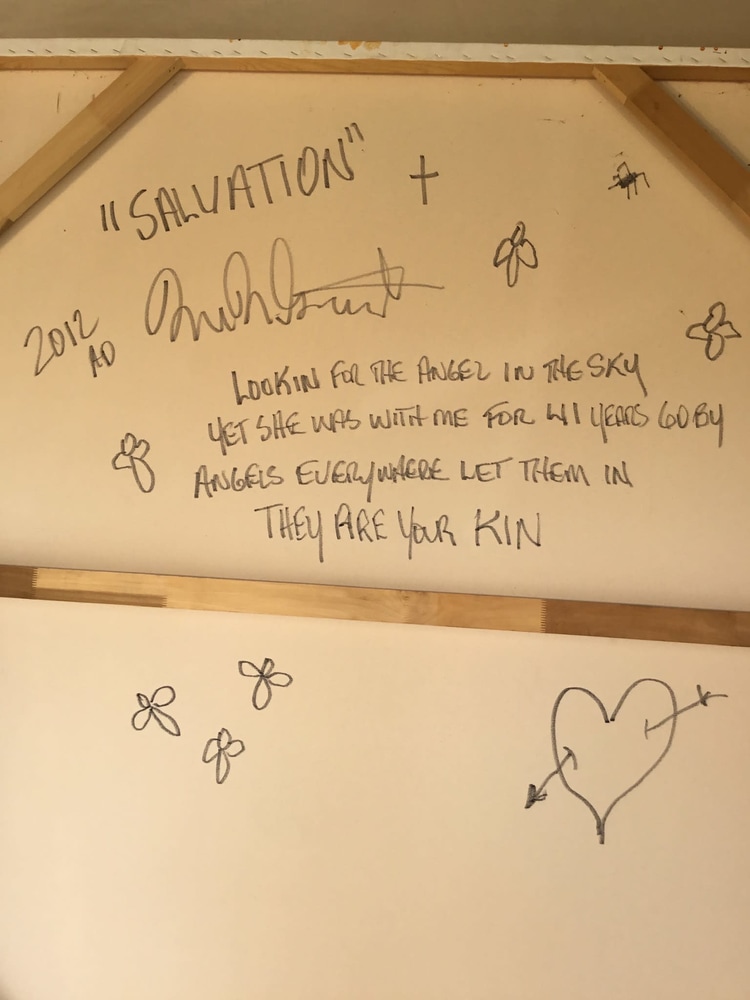 "SALVATION"
2012
AD
LOOKIN FOR THE ANGEL IN THE SKY
YET SHE WAS WITH ME FOR 41 YEARS GO BY
ANGELS EVERYWHERE LET THEM IN
THEY ARE YOUR KIN